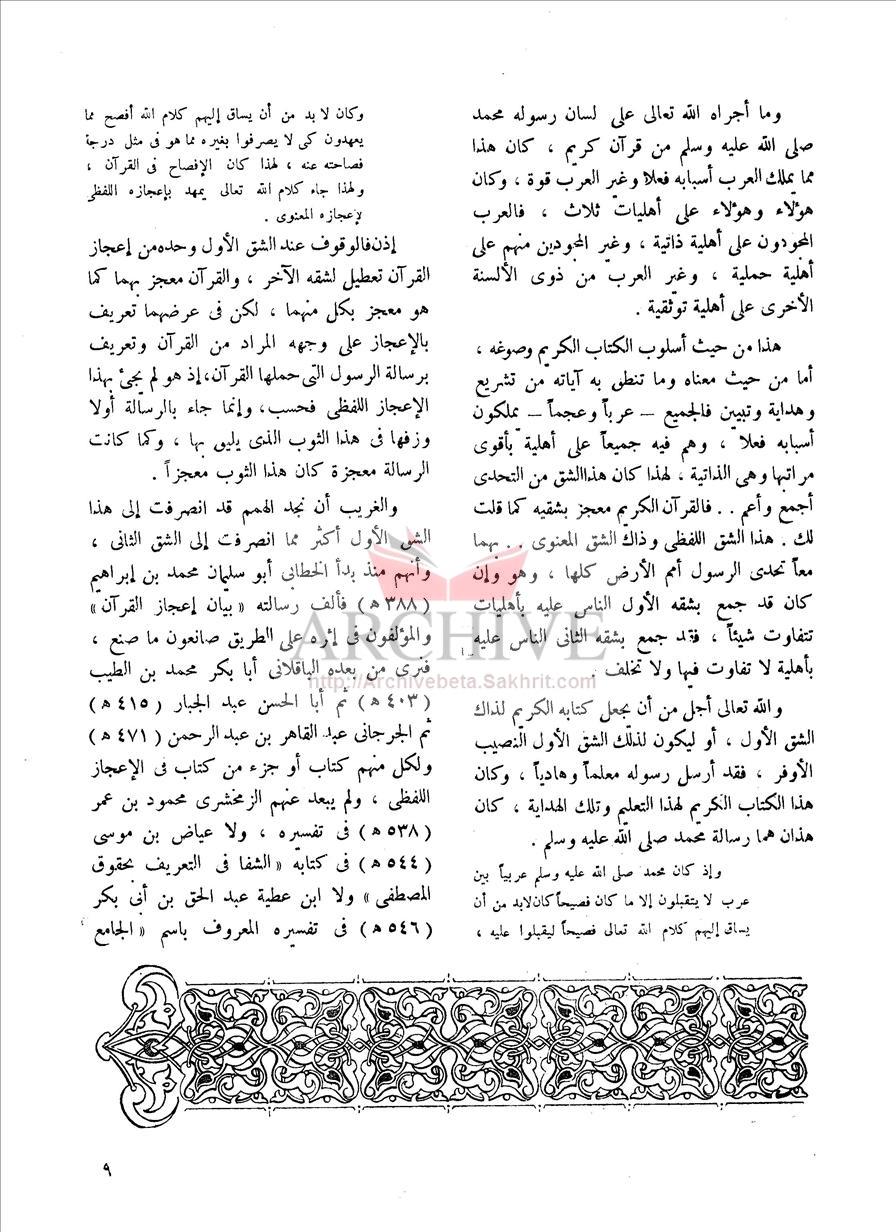 وما أجراه الله تعالى على لسان رسوله محمد
صلى الله عليه وسلم من قرآن كريم ، كان هذا
مما يملك العرب أسبابه فعلا وغير العرب قوة ، وكان
هؤلاء وهؤلاء على أهليات ثلاث ، فالعرب
المجودون على أهلية ذاتية ، وغير المجودين منهم على
أهلية حملية ، وغير العرب من ذوى الألسنة
الأخرى على أهلية توثقية .
هذا من حيث أسلوب الكتاب الكريم وصوغه ،
أما من حيث معناه وما تنطق به آياته من تشريع
وهداية وتبيين فالجميع – عرباً وعجماً – يملكون
أسبابه فعلا ، وهم فيه جميعاً على أهلية بأقوى
مراتبها وهى الذاتية ، لهذا كان هذا الشق من التحدى
أجمع وأعم . . فالقرآن الكريم معجز بشقيه كما قلت
لك . هذا الشق اللفظى وذاك الشق المعنوى . . بهما
معاً تحدى الرسول أمم الأرض كلها ، وهو وإن
كان قد جمع بشقه الأول الناس عليه بأهليات
تتفاوت شيئاً ، فقد جمع بشقه الثانى الناس عليه
بأهلية لا تفاوت فيها ولا تخلف .
والله تعالى أجل من أن يجعل كتابه الكريم لذاك
الشق الأول ، أو ليكون لذلك الشق الأول النصيب
الأوفر ، فقد أرسل رسوله معلماً وهادياً ، وكان
هذا الكتاب الكريم لهذا التعليم وتلك الهداية ، كان
هذان هما رسالة محمد صلى الله عليه وسلم .
وإذ كان محمد صلى الله عليه وسلم عربياً بين
عرب لا يتقبلون إلا ما كان فصيحاً كان لابد من أن
يساق إليهم كلام الله تعالى فصيحاً ليقبلوا عليه ،
وكان لا بد من أن يساق إليهم كلام الله أفصح مما
يعهدون كى لا يصرفوا بغيره مما هو فى مثل درجة
فصاحته عنه ، لهذا كان الإفصاح فى القرآن ،
ولهذا جاء كلام الله تعالى يمهد بإعجازه اللفظى
لإعجازه المعنوى .
إذن فالوقوف عند الشق الأول وحده من إعجاز
القرآن تعطيل لشقه الآخر ، والقرآن معجز بهما كما
هو معجز بكل منهما ، لكن فى عرضهما تعريف
بالإعجاز على وجهه المراد من القرآن وتعريف
برسالة الرسول التى حملها القرآن، إذ هو لم يجئ بهذا
الإعجاز اللفظى فحسب، وإنما جاء بالرسالة أولا
وزفها فى هذا الثوب الذى يليق بها ، وكما كانت
الرسالة معجزة كان هذا الثوب معجزاً .
والغريب أن نجد الهمم قد انصرفت إلى هذا
الشق الأول أكثر مما انصرفت إلى الشق الثانى ،
وأنهم منذ بدأ الخطابى أبو سليمان محمد بن إبراهيم
( ٣٨٨ ه ) فألف رسالته « بيان إعجاز القرآن »
والمؤلفون فى إثره على الطريق صانعون ما صنع ،
فنرى من بعده الباقلانى أبا بكر محمد بن الطيب
( ٤٠٣ ه ) ثم أبا الحسن عبد الجبار ( ٤١٥ ه )
ثم الجرجانى عبد القاهر بن عبد الرحمن ( ٤٧١ ه )
ولكل منهم كتاب أو جزء من كتاب فى الإعجاز
اللفظى ، ولم يبعد عنهم الزمخشرى محمود بن عمر
( ٥٣٨ ه ) فى تفسيره ، ولا عياض بن موسى
( ٥٤٤ ه ) فى كتابه « الشفا فى التعريف بحقوق
المصطفى » ولا ابن عطية عبد الحق بن أبى بكر
( ٥٤٦ ه ) فى تفسيره المعروف باسم « الجامع
ARCHIVE
http://Archivebeta.Sakhrit.com
٩